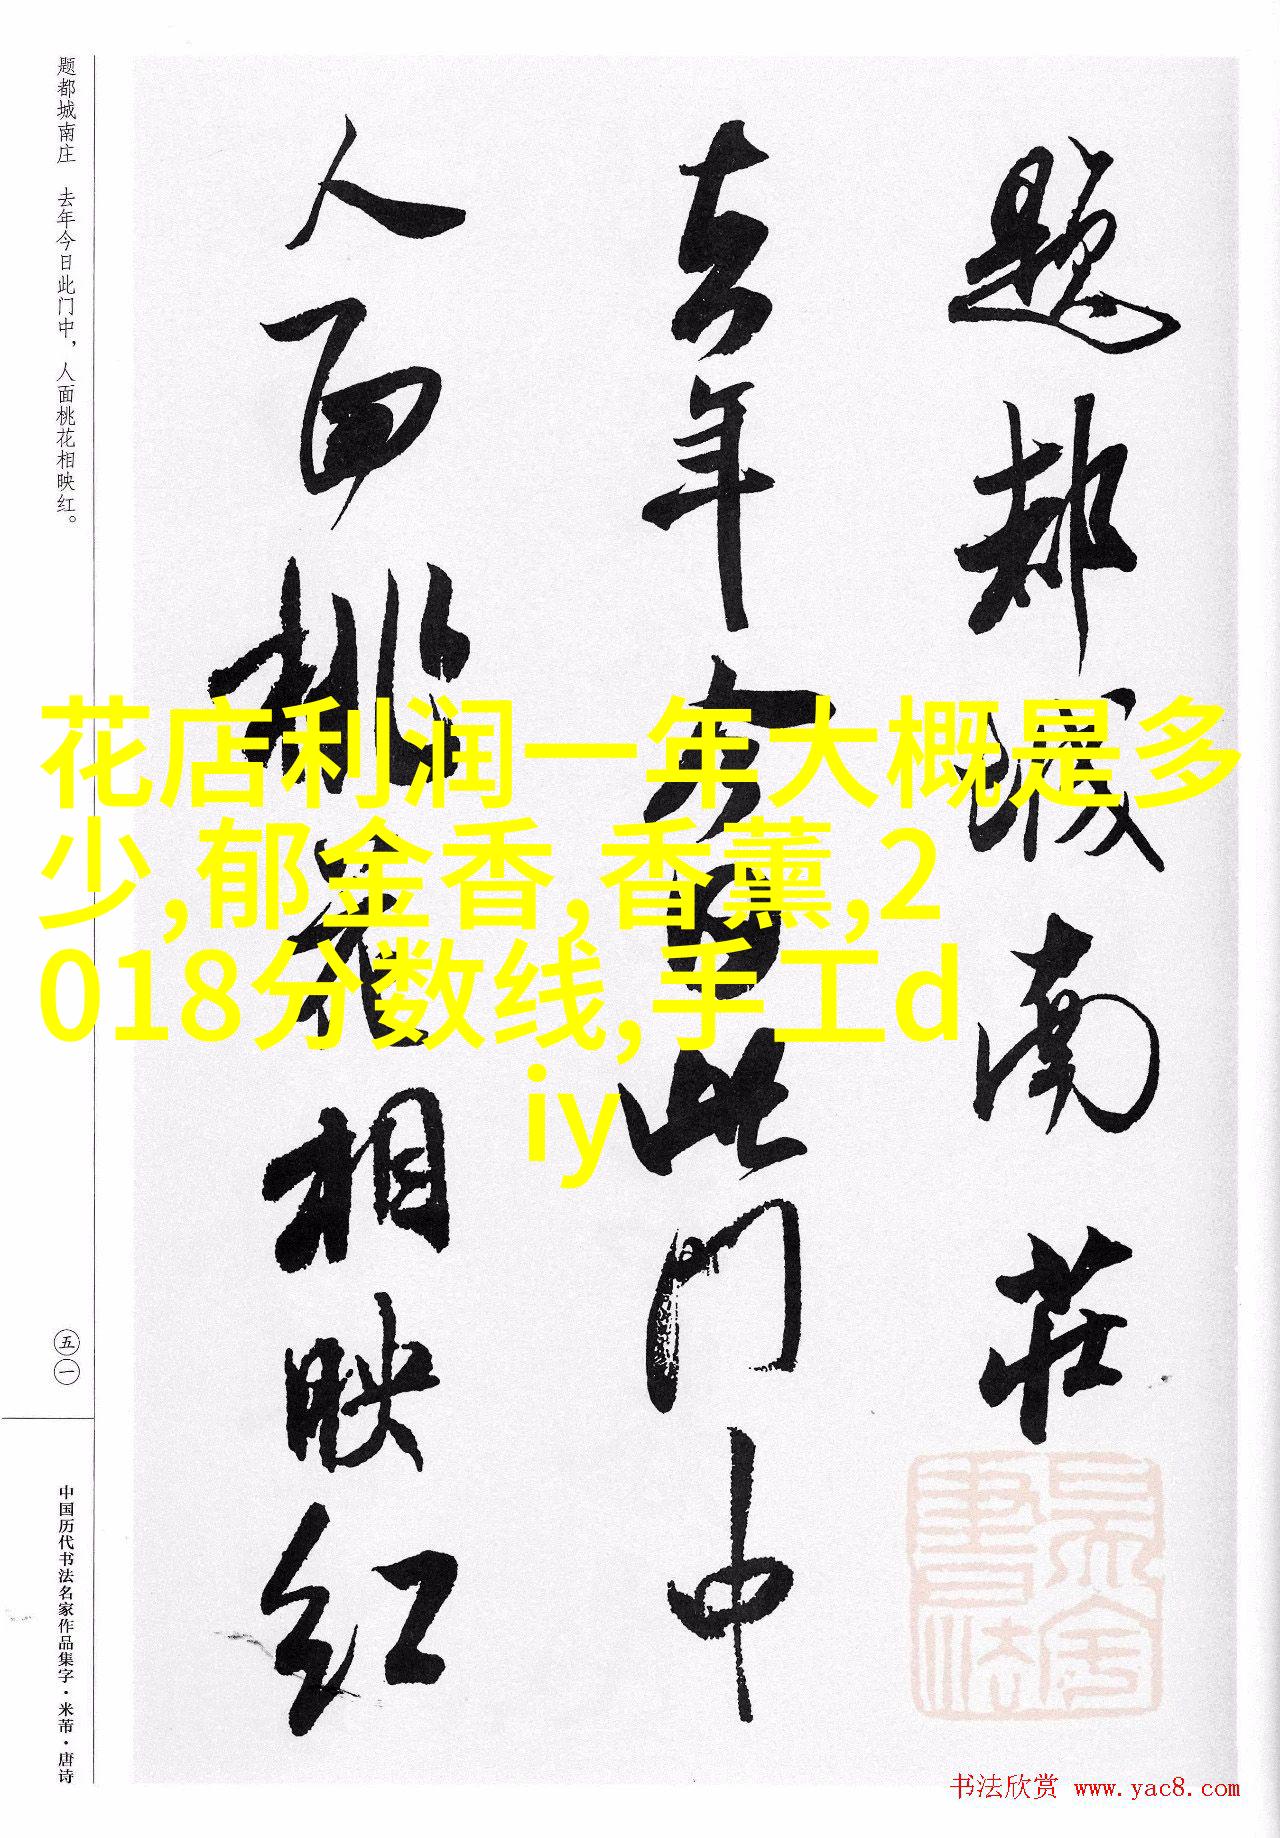 题都城南庄 去年今日此门中，人面桃花相映红。
題都城南莊
去年今日此门中
人面桃花相映红
花店利润一年大概是多
少,郁金香,香薰,2
018分数线,手工d
iy
五一
中国历代书法名家作品集字·米芾·唐诗
书法欣赏 www.yac8.com